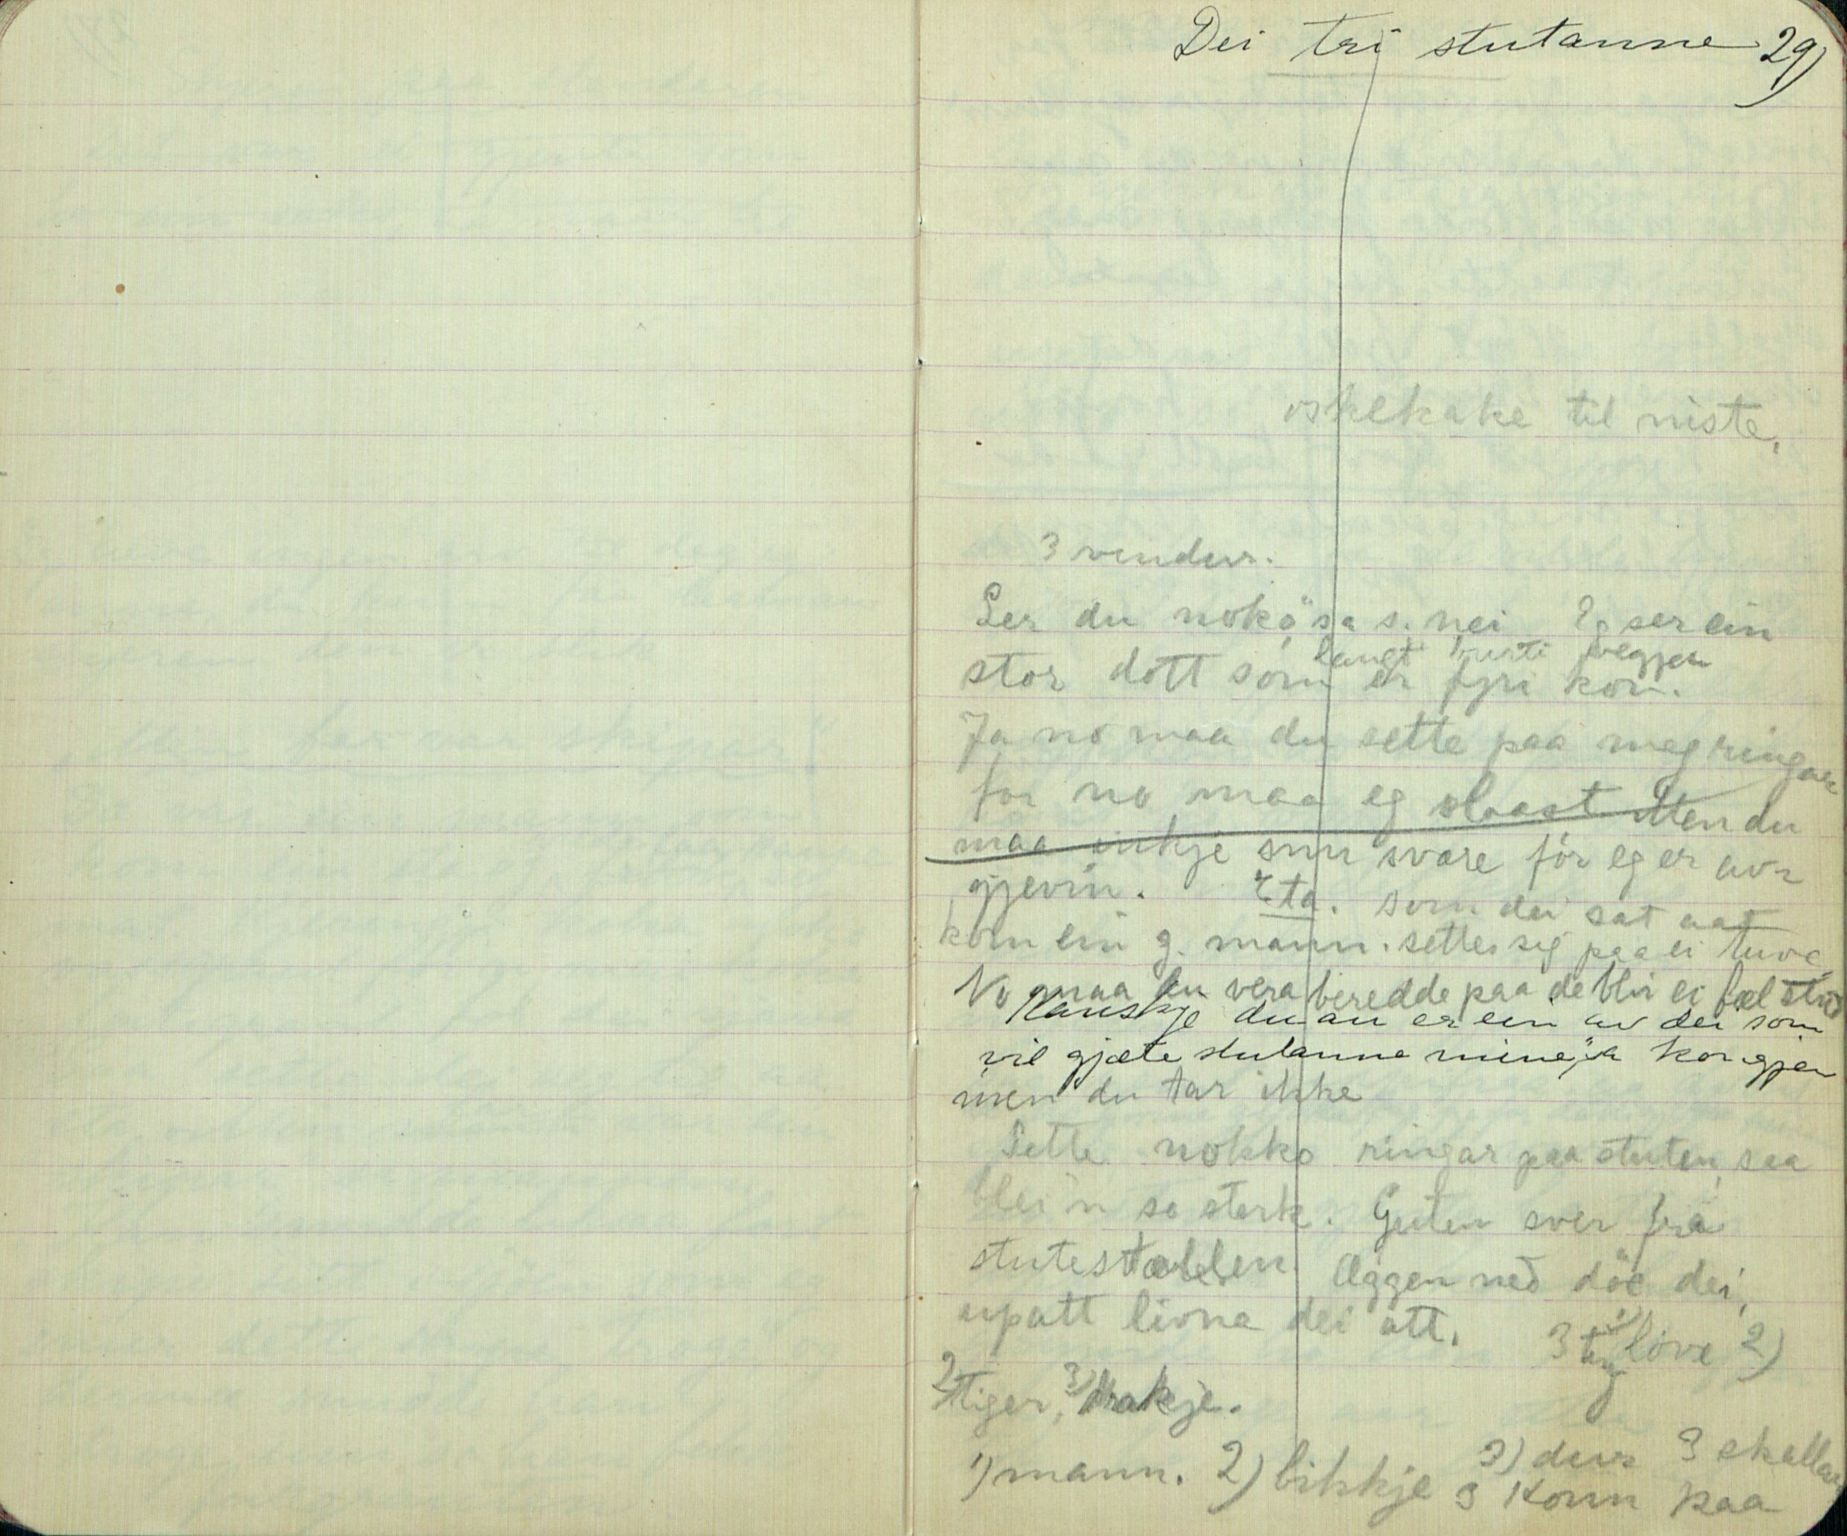 Dei tri stutanne 29)
oskekake til niste,
3 vendur.
Ser du nokó" sa s. nei Eg ser ein
langt burti vegjen
stor dott som er fyri kon.
Ja no maa du sette paa meg ringane
for no maa eg slaast Men du
maa inkje snu svare för eg er uvr
gjevin. som dei sat aat
kom ein g. mann. settes sig paa ei tuve,
No maa du vera beredde paa de blir ei fæl strid
Kanskje du au er ein av dei som
vil gjæte stutanne mine, ja kongjen
men du tar ikke
Sette nokko ringar paa stuten, saa
blei'n so sterk. Guten sver fra
stutestallen. Æggen ned döe dei,
upatt livna dei att. 3 1) löve 2)
2 tiger, 3) drakje.
1) mann. 2) bikkje 3) dur 3 skallar
3 Konn paa